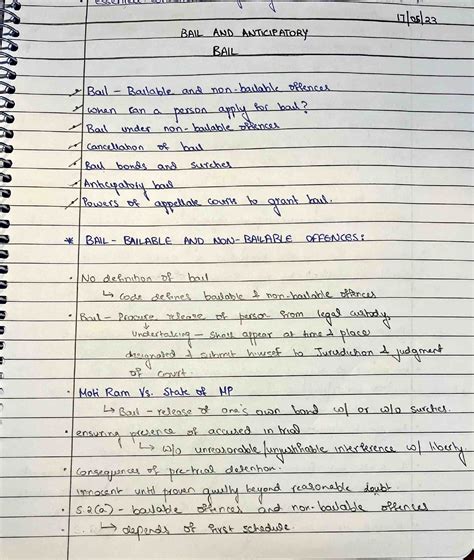 17/05/23
BAIL AND ANTICIPATORY
BAIL
Bail - Bailable and non-bailable offences
When can a person apply for bail?
Bail under non-bailable offences
Cancellation of bail
Bail bonds and surties
Anticipatory bail
Powers of appellate courts to grant bail.
* BAIL - BAILABLE AND NON-BAILABLE OFFENCES:
• No definition of bail
↳ Code defines bailable & non-bailable offences
• Bail - Procure release of person from legal custody,
↓ undertaking - shall appear at time & place
designated & submit himself to Jurisdiction & judgment
of court.
• Moti Ram Vs. State of MP
↳ Bail - release of one's own bond w/ or w/o
• ensuring presence of accused in trial
↳ w/o unreasonable/unjustifiable interference w/ liberty
• Consequences of pre-trial detention.
• Innocent until proven guilty beyond reasonable doubt.
• S.2(a) - bailable offences and non-bailable offences
↳ depends of first schedule.